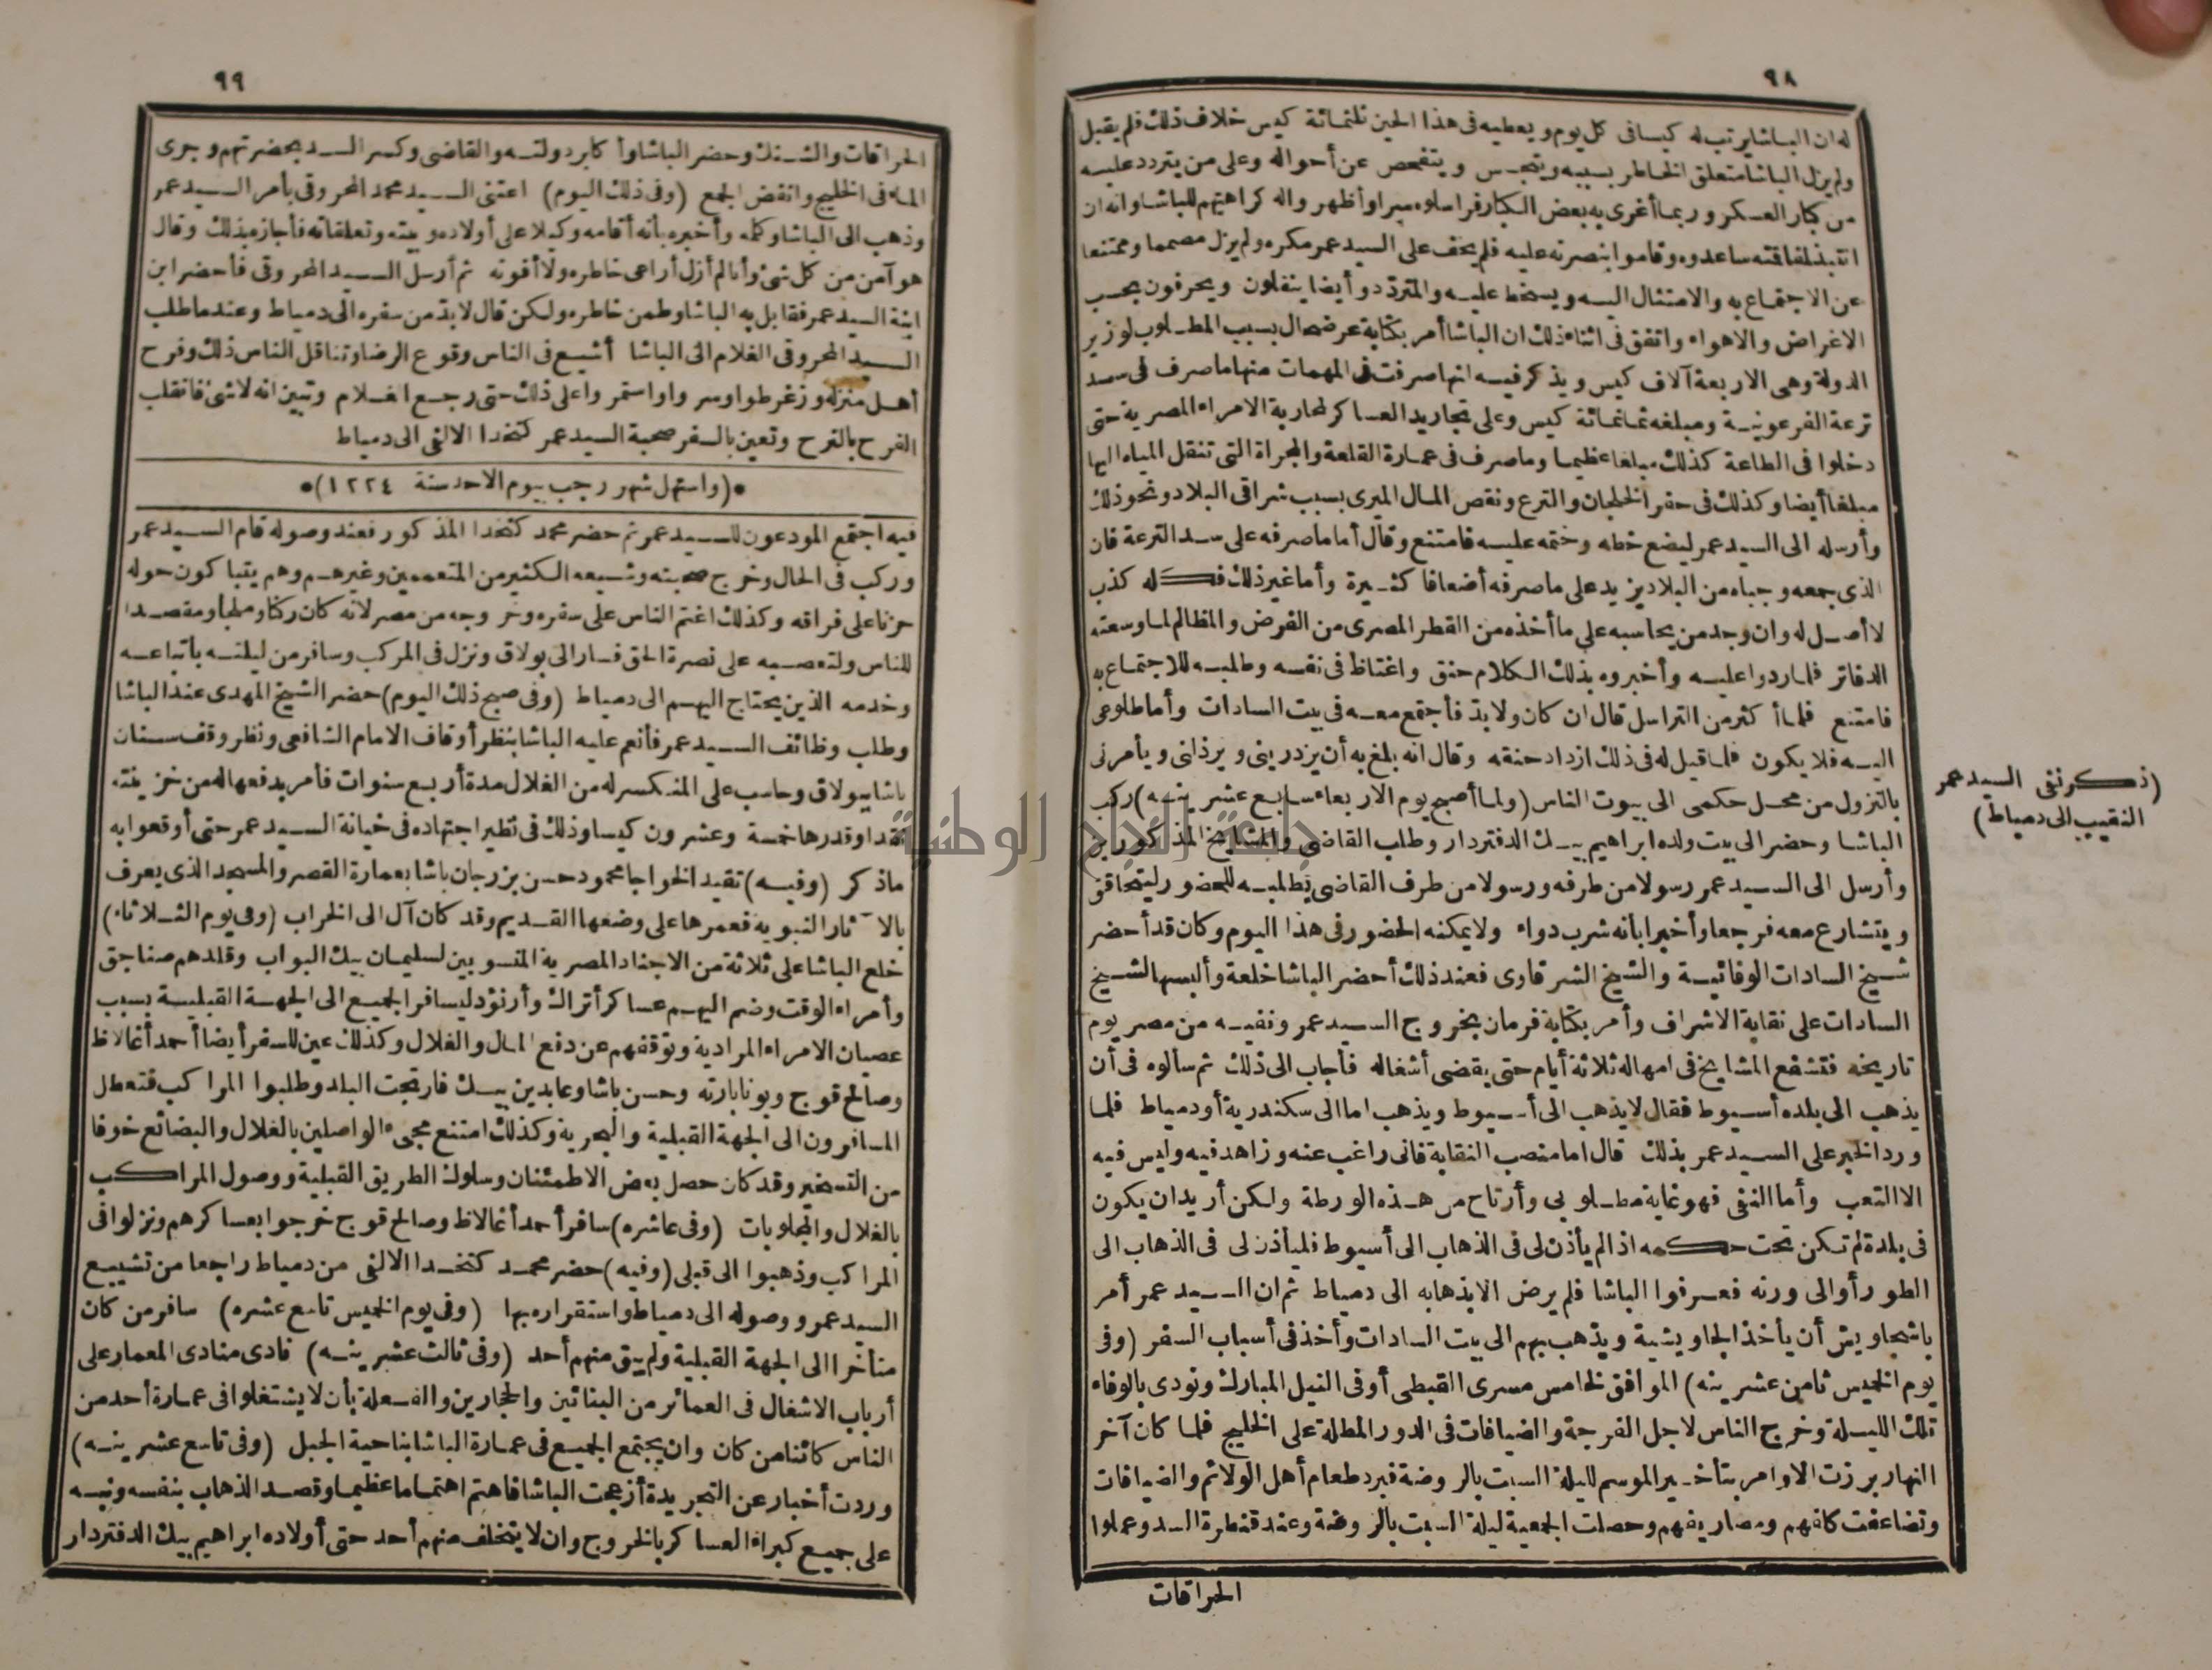 ٩٨
له ان الباشا يرتب له كيسا فى كل يوم ويعطيه فى هذا الحين ثلثمائة كيس خلاف ذلك فلم يقبل
ولم يزل الباشا متعلق الخاطر بسببه ويتجسس ويتفحص عن أحواله وعلى من يتردد عليه
من كبار العسكر وربما أغرى به بعض الكبار فراسلوه سرا وأظهر واله كراهتهم للباشا وانه ان
انتبذ لمفاقته ساعدوه وقاموا بنصرته عليه فلم يخف على السيد عمر مكره ولم يزل مصمما وممتنعا
عن الاجتماع به والامتثال اليه ويسخط عليه والمتردّدو أيضا ينقلون ويحرفون بحسب
الاغراض والاهواء واتفق فى اثناء ذلك ان الباشا أمر بكتابة عرضحال بسبب المطلوب لوزير
الدولة وهى الاربعة آلاف كيس ويذكر فيه انها صرفت فى المهمات منها ما صرف فى سد
ترعة الفرعونية ومبلغه ثمانمائة كيس وعلى تجاريد العساكر لمحاربة الامراء المصرية حتى
دخلوا فى الطاعة كذلك مبلغا عظيما وما صرف فى عمارة القلعة والمجراة التى تنقل المياه اليها
مبلغا أيضا وكذلك فى حفر الخلجان والترع ونقص المال الميرى بسبب شراقى البلاد ونحو ذلك
وأرسله الى السيد عمر ليضع خطه وختمه عليه فامتنع وقال أما ما صرفه على سد الترعة فان
الذى جمعه وجباه من البلاد يزيد على ما صرفه أضعافا كثيرة وأما غير ذلك فكله كذب
لا أصل له وان وجد من يحاسبه على ما أخذه من القطر المصرى من الفرض والمظالم لما وسعته
الدفاتر فلما ردوا عليه وأخبروه بذلك الكلام حنق واغتاظ فى نفسه وطلبه للاجتماع به
فامتنع فلما أكثر من التراسل قال ان كان ولا بدّ فأجتمع معه فى بيت السادات وأما طلوعى
اليه فلا يكون فلما قيل له فى ذلك ازداد حنقه وقال انه بلغ به أن يزدرينى ويرذلنى ويأمرنى
بالنزول من محل حكمى الى بيوت الناس (ولما أصبح يوم الاربعاء سابع عشرينه) ركب
الباشا وحضر الى بيت ولده ابراهيم بيك الدفتردار وطلب القاضى والمشايخ المذكورين
وأرسل الى السيد عمر رسولا من طرفه ورسولا من طرف القاضى يطلبه للحضور ليتحاقق
ويتشارع معه فرجعا وأخبرا بأنه شرب دواء ولا يمكنه الحضور فى هذا اليوم وكان قد أحضر
شيخ السادات الوفائية والشيخ الشرقاوى فعند ذلك أحضر الباشا خلعة وألبسها لشيخ
السادات على نقابة الاشراف وأمر بكتابة فرمان بخروج السيد عمر ونفيه من مصر يوم
تاريخه فتشفع المشايخ فى امهاله ثلاثة أيام حتى يقضى أشغاله فأجاب الى ذلك ثم سألوه فى أن
يذهب الى بلده أسيوط فقال لا يذهب الى أسيوط ويذهب اما الى سكندرية أو دمياط فلما
ورد الخبر على السيد عمر بذلك قال اما منصب النقابة فانى راغب عنه وزاهد فيه وليس فيه
الا التعب وأما النفى فهو غاية مطلوبى وأرتاح من هذه الورطة ولكن أريد ان يكون
فى بلدة لم تكن تحت حكمه اذا لم يأذن لى فى الذهاب الى أسيوط فليأذن لى فى الذهاب الى
الطور أو الى ورنه فعرفوا الباشا فلم يرض الا بذهابه الى دمياط ثم ان السيد عمر أمر
باشجاويش أن يأخذ الجاويشية ويذهب بهم الى بيت السادات وأخذ فى أسباب السفر (وفى
يوم الخميس ثامن عشرينه) الموافق لخامس مسرى القبطى أوفى النيل المبارك ونودى بالوفاء
تلك الليلة وخرج الناس لاجل الفرجة والضيافات فى الدور المطلة على الخليج فلما كان آخر
النهار برزت الاوامر بتأخير الموسم لليلة السبت بالروضة فبرد طعام أهل الولائم والضيافات
وتضاعفت كلفهم ومصاريفهم وحصلت الجمعية ليلة السبت بالروضة وعند قنطرة السد وعملوا
الحراقات
(ذكر نفى السيد عمر
النقيب الى دمياط)
٩٩
الحراقات والشنك وحضر الباشا وأكابر دولته والقاضى وكسر السد بحضرتهم وجرى
الماء فى الخليج وانفض الجمع (وفى ذلك اليوم) اعتنى السيد محمد المحروقى بأمر السيد عمر
وذهب الى الباشا وكلمه وأخبره بأنه أقامه وكيلا على أولاده وبيته وتعلقاته فأجازه بذلك وقال
هو آمن من كل شئ وأنا لم أزل أراعى خاطره ولا أفوته ثم أرسل السيد المحروقى فأحضر ابن
ابنة السيد عمر فقابل به الباشا وطمن خاطره ولكن قال لا بد من سفره الى دمياط وعندما طلب
السيد المحروقى الغلام الى الباشا أشيع فى الناس وقوع الرضا وتناقل الناس ذلك وفرح
أهل منزله وزغرطوا وسر واواستمر واعلى ذلك حتى رجع الغلام وتبين انه لا شئ فانقلب
الفرح بالترح وتعين بالسفر صحبة السيد عمر كتخدا الالفى الى دمياط
*(واستهل شهر رجب بيوم الاحد سنة ١٢٢٤)*
فيه اجتمع المودعون للسيد عمر ثم حضر محمد كتخدا المذكور فعند وصوله قام السيد عمر
وركب فى الحال وخرج صحبته وشيعه الكثير من المتعممين وغيرهم وهم يتباكون حوله
حزنا على فراقه وكذلك اغتم الناس على سفره وخروجه من مصر لانه كان ركنا وملجأ ومقصدا
للناس ولتعصبه على نصرة الحق فسار الى بولاق ونزل فى المركب وسافر من ليلته بأتباعه
وخدمه الذين يحتاج اليهم الى دمياط (وفى صبح ذلك اليوم) حضر الشيخ المهدى عند الباشا
وطلب وظائف السيد عمر فأنعم عليه الباشا بنظر أوقاف الامام الشافعى ونظر وقف سنان
باشا ببولاق وحاسب على المنكسر له من الغلال مدة أربع سنوات فأمر بدفعها له من خزينته
نقدا وقدرها خمسة وعشرون كيسا وذلك فى نظير اجتهاده فى خيانة السيد عمر حتى أوقعوا به
ماذكر (وفيه) تقيد الخواجا محمود حسن بزرجان باشا بعمارة القصر والمسجد الذى يعرف
بالآثار النبوية فعمرها على وضعها القديم وقد كان آل الى الخراب (وفى يوم الثلاثاء)
خلع الباشا على ثلاثة من الاجناد المصرية المنسوبين لسليمان بيك البواب وقلدهم صناجق
وأمراء الوقت وضم اليهم عساكر أتراك وأرنؤد ليسافر الجميع الى الجهة القبلية بسبب
عصيان الامراء المرادية وتوقفهم عن دفع المال والغلال وكذلك عين للسفر أيضا أحمد أغا لاظ
وصالح قوج وبونابارته وحسن باشا وعابدين بيك فارتجت البلد وطلبوا المراكب فتعطل
المسافرون الى الجهة القبلية والبحرية وكذلك امتنع مجىء الواصلين بالغلال والبضائع خوفا
من التسخير وقد كان حصل بعض الاطمئنان وسلوك الطريق القبلية ووصول المراكب
بالغلال والمجلوبات (وفى عاشره) سافر أحمد أغا لاظ وصالح قوج خرجوا بعساكرهم ونزلوا فى
المراكب وذهبوا الى قبلى (وفيه) حضر محمد كتخدا الالفى من دمياط راجعا من تشييع
السيد عمر ووصوله الى دمياط واستقراره بها (وفى يوم الخميس تاسع عشره) سافر من كان
متأخرا الى الجهة القبلية ولم يبق منهم أحد (وفى ثالث عشرينه) نادى منادى المعمار على
أرباب الاشغال فى العمائر من البنائين والحجارين والفعلة بأن لا يشتغلوا فى عمارة أحد من
الناس كائنا من كان وان يجتمع الجميع فى عمارة الباشا بناحية الجبل (وفى تاسع عشرينه)
وردت أخبار عن التجريدة أزعجت الباشا فاهتم اهتماما عظيما وقصد الذهاب بنفسه ونبه
على جميع كبراء العساكر بالخروج وان لا يتخلف منهم أحد حتى أولاده ابراهيم بيك الدفتردار
جامعة النجاح الوطنية